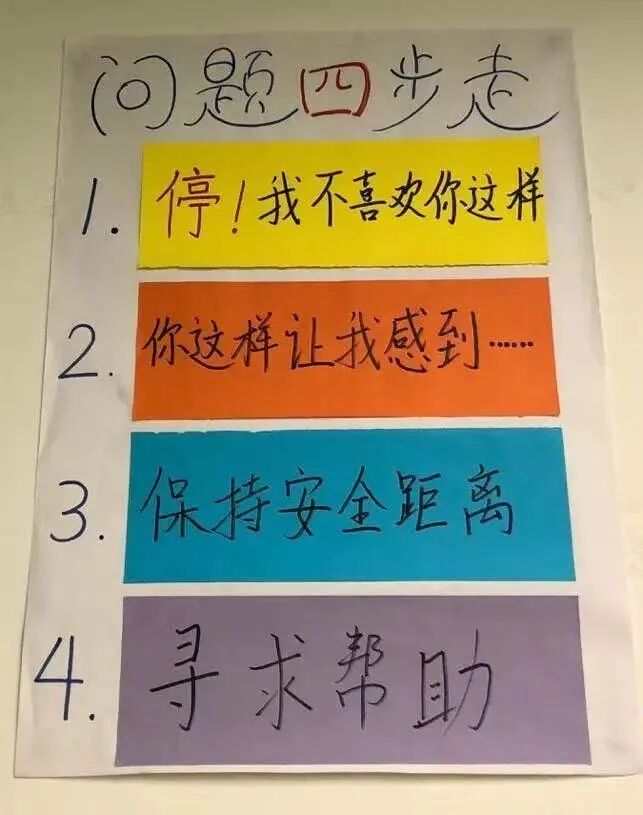 问题四步走
1. 停！我不喜欢你这样
2. 你这样让我感到……
3. 保持安全距离
4. 寻求帮助